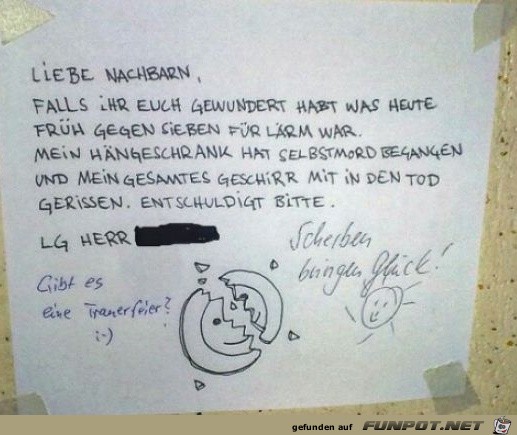 LIEBE NACHBARN,
FALLS IHR EUCH GEWUNDERT HABT WAS HEUTE
FRÜH GEGEN SIEBEN FÜR LÄRM WAR.
MEIN HÄNGESCHRANK HAT SELBSTMORD BEGANGEN
UND MEIN GESAMTES GESCHIRR MIT IN DEN TOD
GERISSEN. ENTSCHULDIGT BITTE.
LG HERR
Scherben
bringen Glück!
Gibt es
eine Trauerfeier?
;-)
gefunden auf FUNPOT.NET